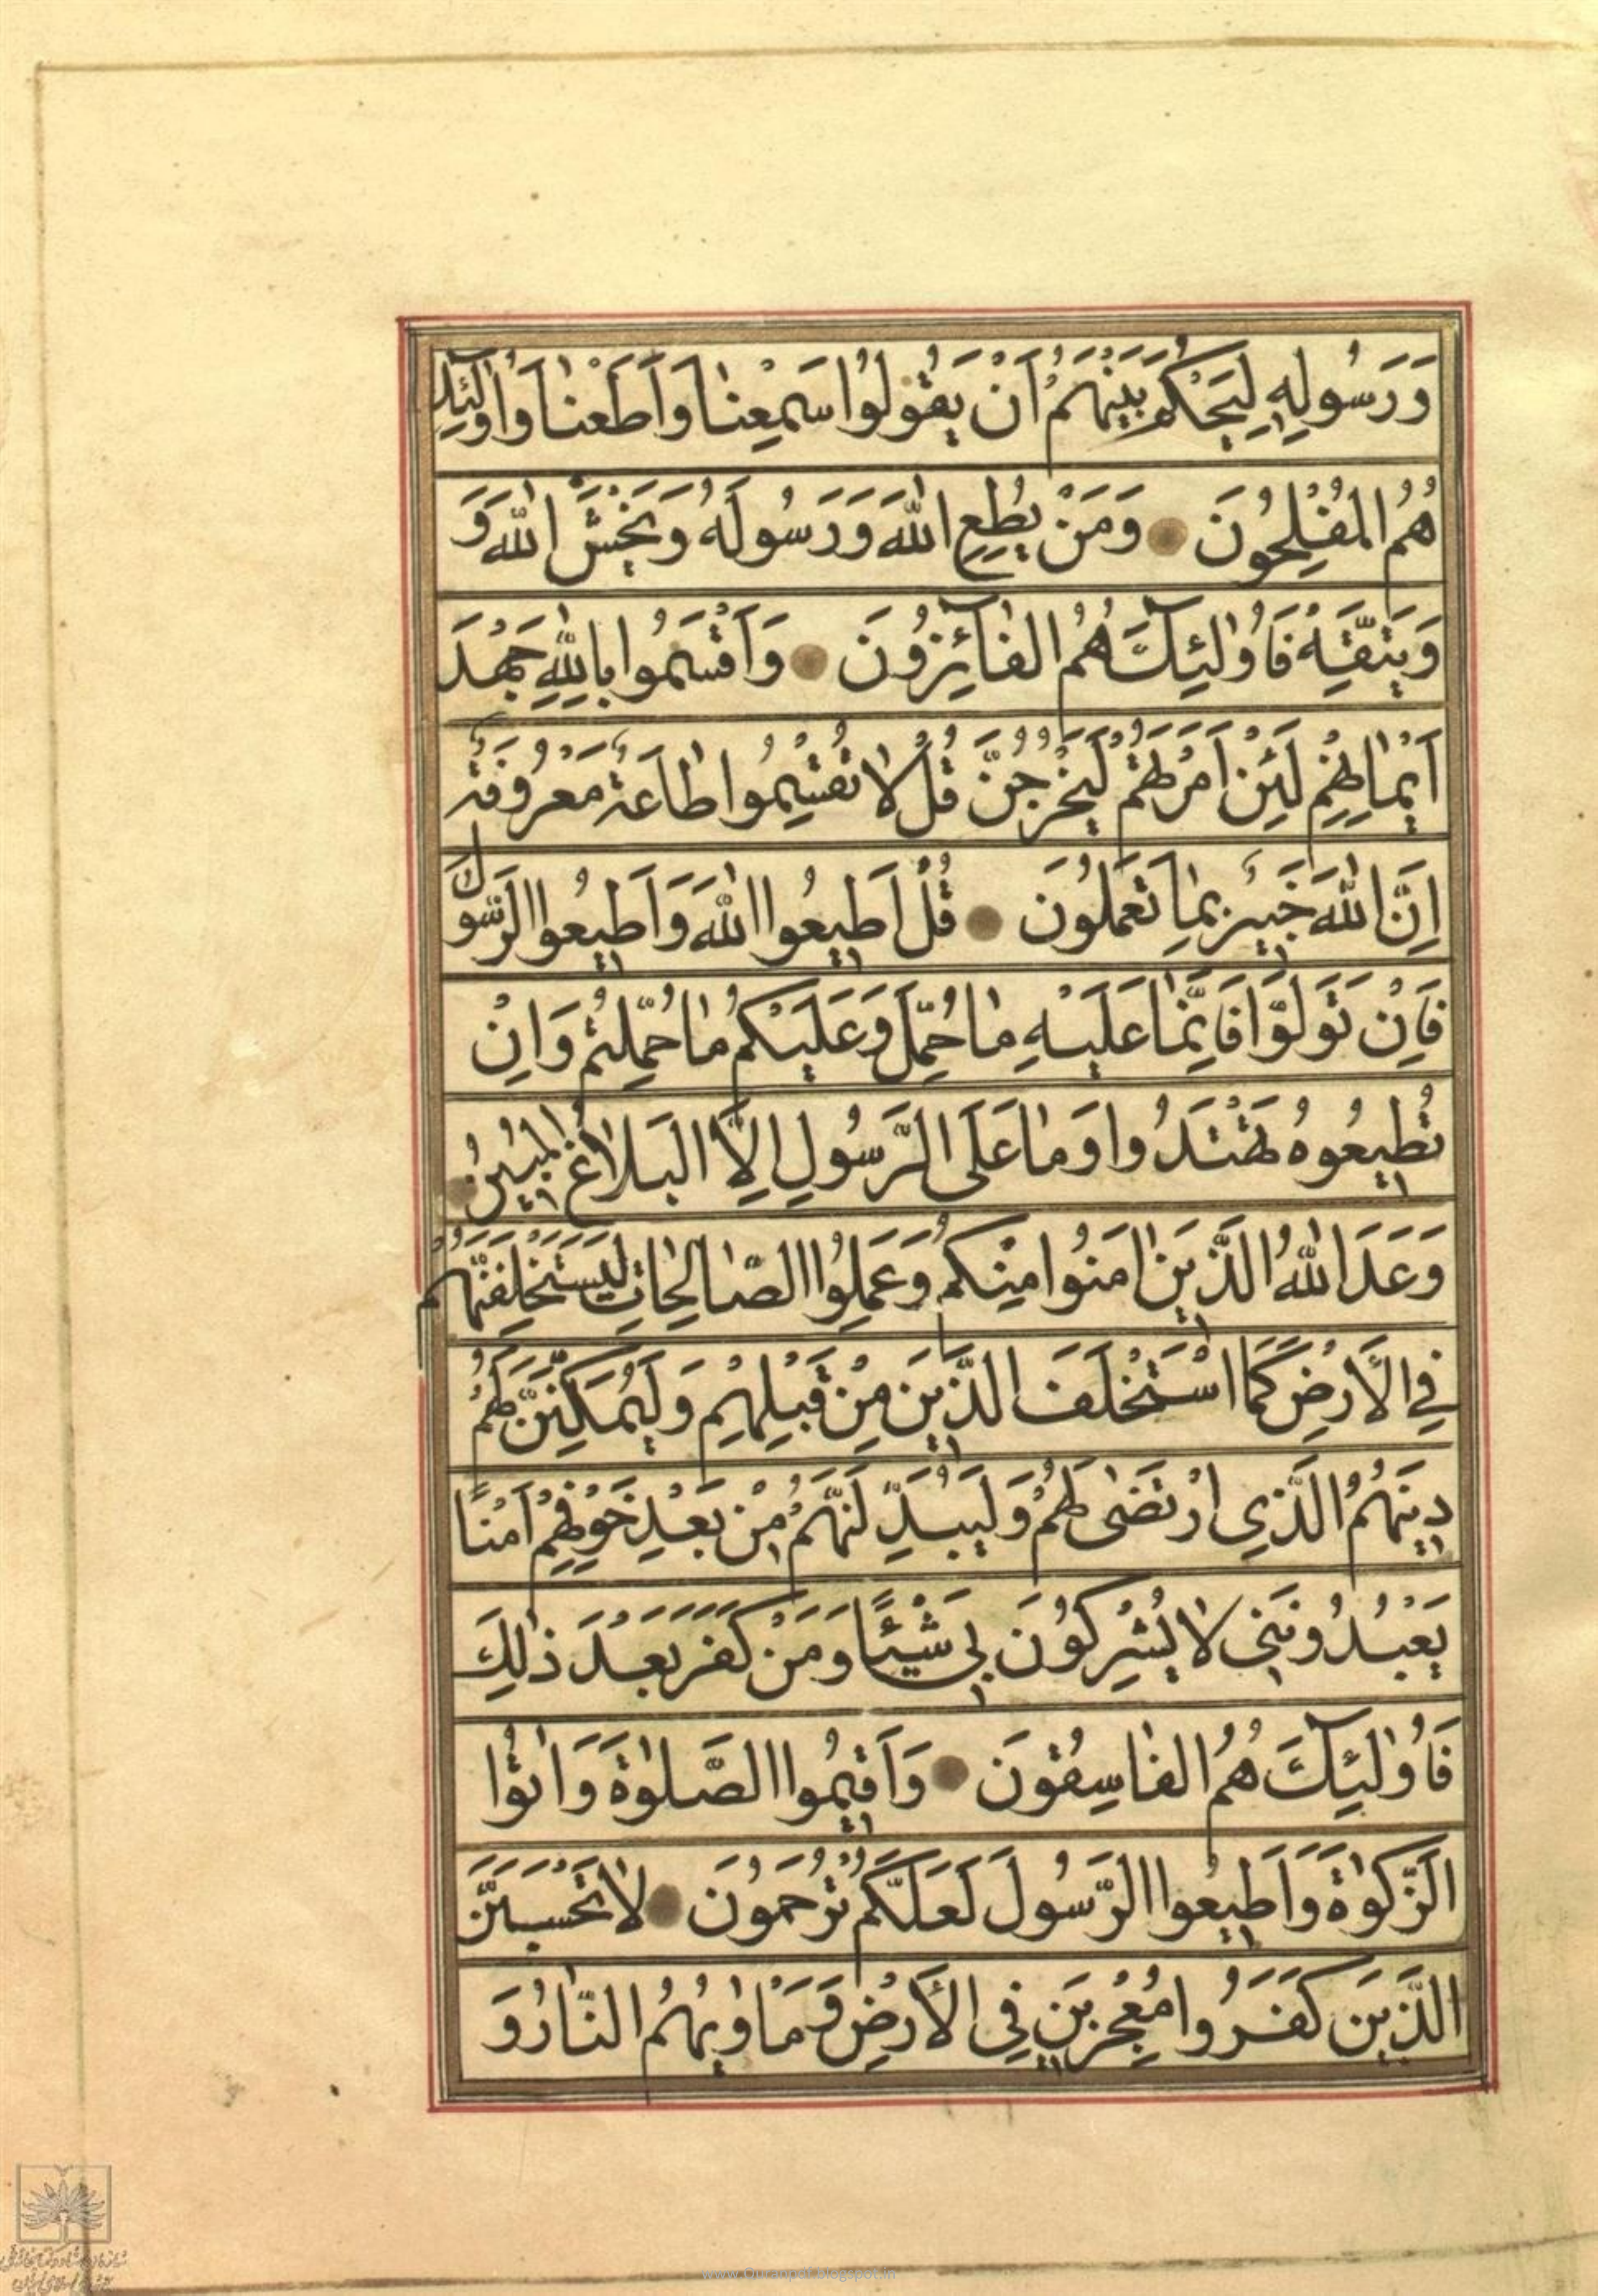 وَرَسُولِهِ لِيَحْكُمَ بَيْنَهُمْ اَنْ يَقُولُوا سَمِعْنٰا وَاَطَعْنٰا وَاُولٰئِكَ
هُمُ الْمُفْلِحُونَ وَمَنْ يُطِعِ اللّٰهَ وَرَسُولَهُ وَيَخْشَ اللّٰهَ وَ
وَيَتَّقِهِ فَاُولٰئِكَ هُمُ الْفٰائِزُونَ وَاَقْسَمُوا بِاللّٰهِ جَهْدَ
اَيْمٰانِهِمْ لَئِنْ اَمَرْتَهُمْ لَيَخْرُجُنَّ قُلْ لاٰ تُقْسِمُوا طٰاعَةٌ مَعْرُوفَةٌ
اِنَّ اللّٰهَ خَبِيرٌ بِمٰا تَعْمَلُونَ قُلْ اَطِيعُوا اللّٰهَ وَاَطِيعُوا الرَّسُولَ
فَاِنْ تَوَلَّوْا فَاِنَّمٰا عَلَيْهِ مٰا حُمِّلَ وَعَلَيْكُمْ مٰا حُمِّلْتُمْ وَاِنْ
تُطِيعُوهُ تَهْتَدُوا وَمٰا عَلَى الرَّسُولِ اِلاَّ الْبَلاٰغُ الْمُبِينُ
وَعَدَ اللّٰهُ الَّذِينَ اٰمَنُوا مِنْكُمْ وَعَمِلُوا الصّٰالِحٰاتِ لَيَسْتَخْلِفَنَّهُمْ
فِي الْاَرْضِ كَمَا اسْتَخْلَفَ الَّذِينَ مِنْ قَبْلِهِمْ وَلَيُمَكِّنَنَّ لَهُمْ
دِينَهُمُ الَّذِي ارْتَضٰى لَهُمْ وَلَيُبَدِّلَنَّهُمْ مِنْ بَعْدِ خَوْفِهِمْ اَمْنًا
يَعْبُدُونَنِي لاٰ يُشْرِكُونَ بِي شَيْئًا وَمَنْ كَفَرَ بَعْدَ ذٰلِكَ
فَاُولٰئِكَ هُمُ الْفٰاسِقُونَ وَاَقِيمُوا الصَّلٰوةَ وَاٰتُوا
الزَّكٰوةَ وَاَطِيعُوا الرَّسُولَ لَعَلَّكُمْ تُرْحَمُونَ لاٰ تَحْسَبَنَّ
الَّذِينَ كَفَرُوا مُعْجِزِينَ فِي الْاَرْضِ وَمَأْوٰيهُمُ النّٰارُ وَ
www.Quranpdf.blogspot.in